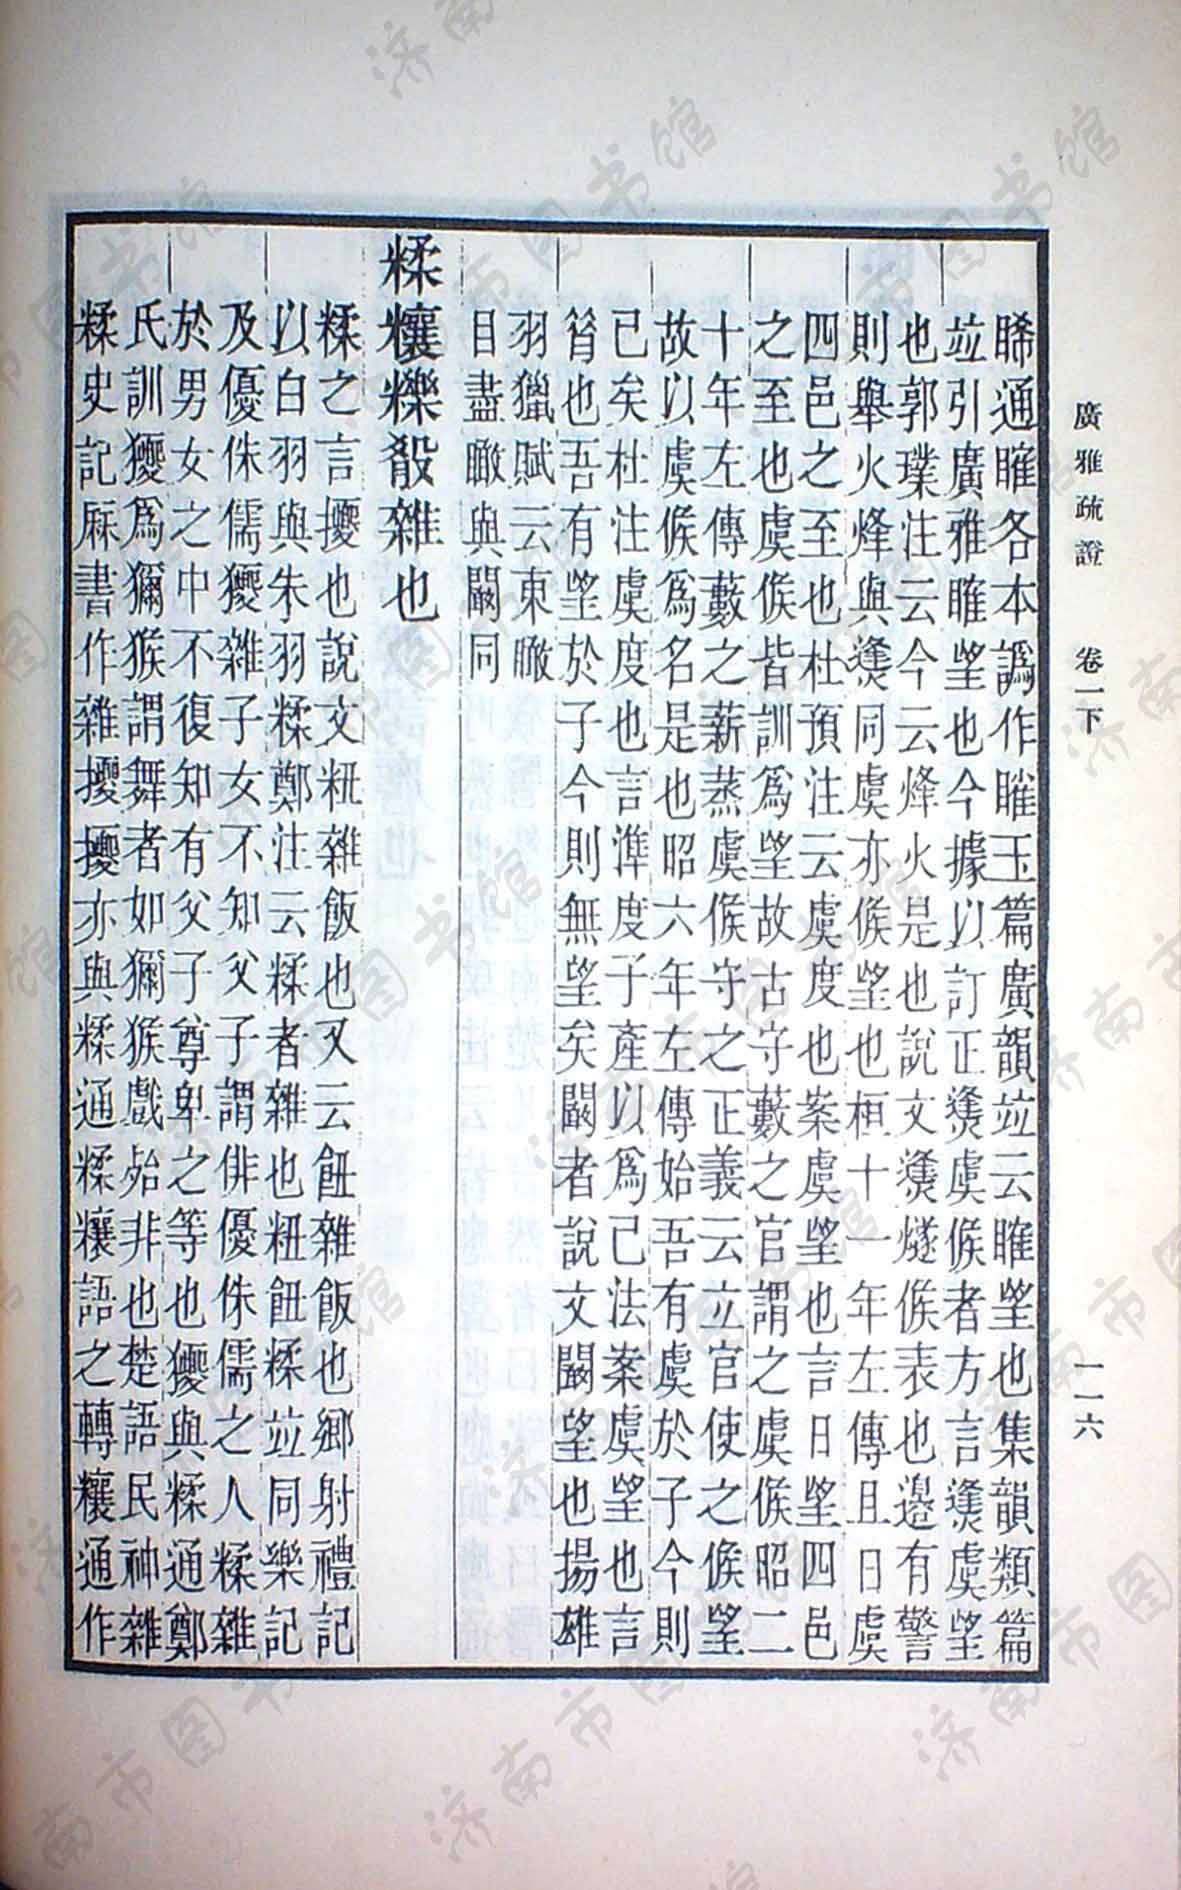 廣雅疏證 卷一下 一一六
睎通睢各本譌作玉篇廣韻竝云睢望也集韻類篇
竝引廣雅睢望也今據以訂正㷭虞候者方言㷭虞望
也郭璞注云今云烽火是也說文㷭燧候表也邉有警
則舉火烽與㷭同虞亦候望也桓十一年左傳且日虞
四邑之至也杜預注云虞度也案虞望也言日望四邑
之至也虞候皆訓爲望故古守藪之官謂之虞候昭二
十年左傳藪之薪蒸虞候守之正義云立官使之候望
故以虞候爲名是也昭六年左傳始吾有虞於子今則
已矣杜注虞度也言準度子產以爲己法案虞望也言
㫺也吾有望於子今則無望矣闞者說文闞望也揚雄
羽獵賦云東瞰
目盡瞰與闞同
糅𥽬𥽗殽雜也
糅之言擾也說文粈雜飯也又云飪雜飯也鄉射禮記
以白羽與朱羽糅鄭注云糅者雜也粈飪糅竝同樂記
及優侏儒獶雜子女不知父子謂俳優侏儒之人糅雜
於男女之中不復知有父子尊卑之等也獶與糅通鄭
氏訓獶爲獼猴謂舞者如獼猴戲殆非也楚語民神雜
糅史記厤書作雜擾擾亦與糅通糅𥽬語之轉𥽬通作